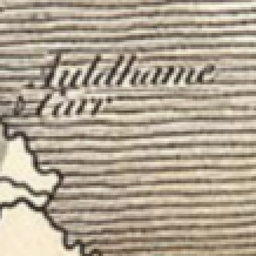 Auldhame
Scarr